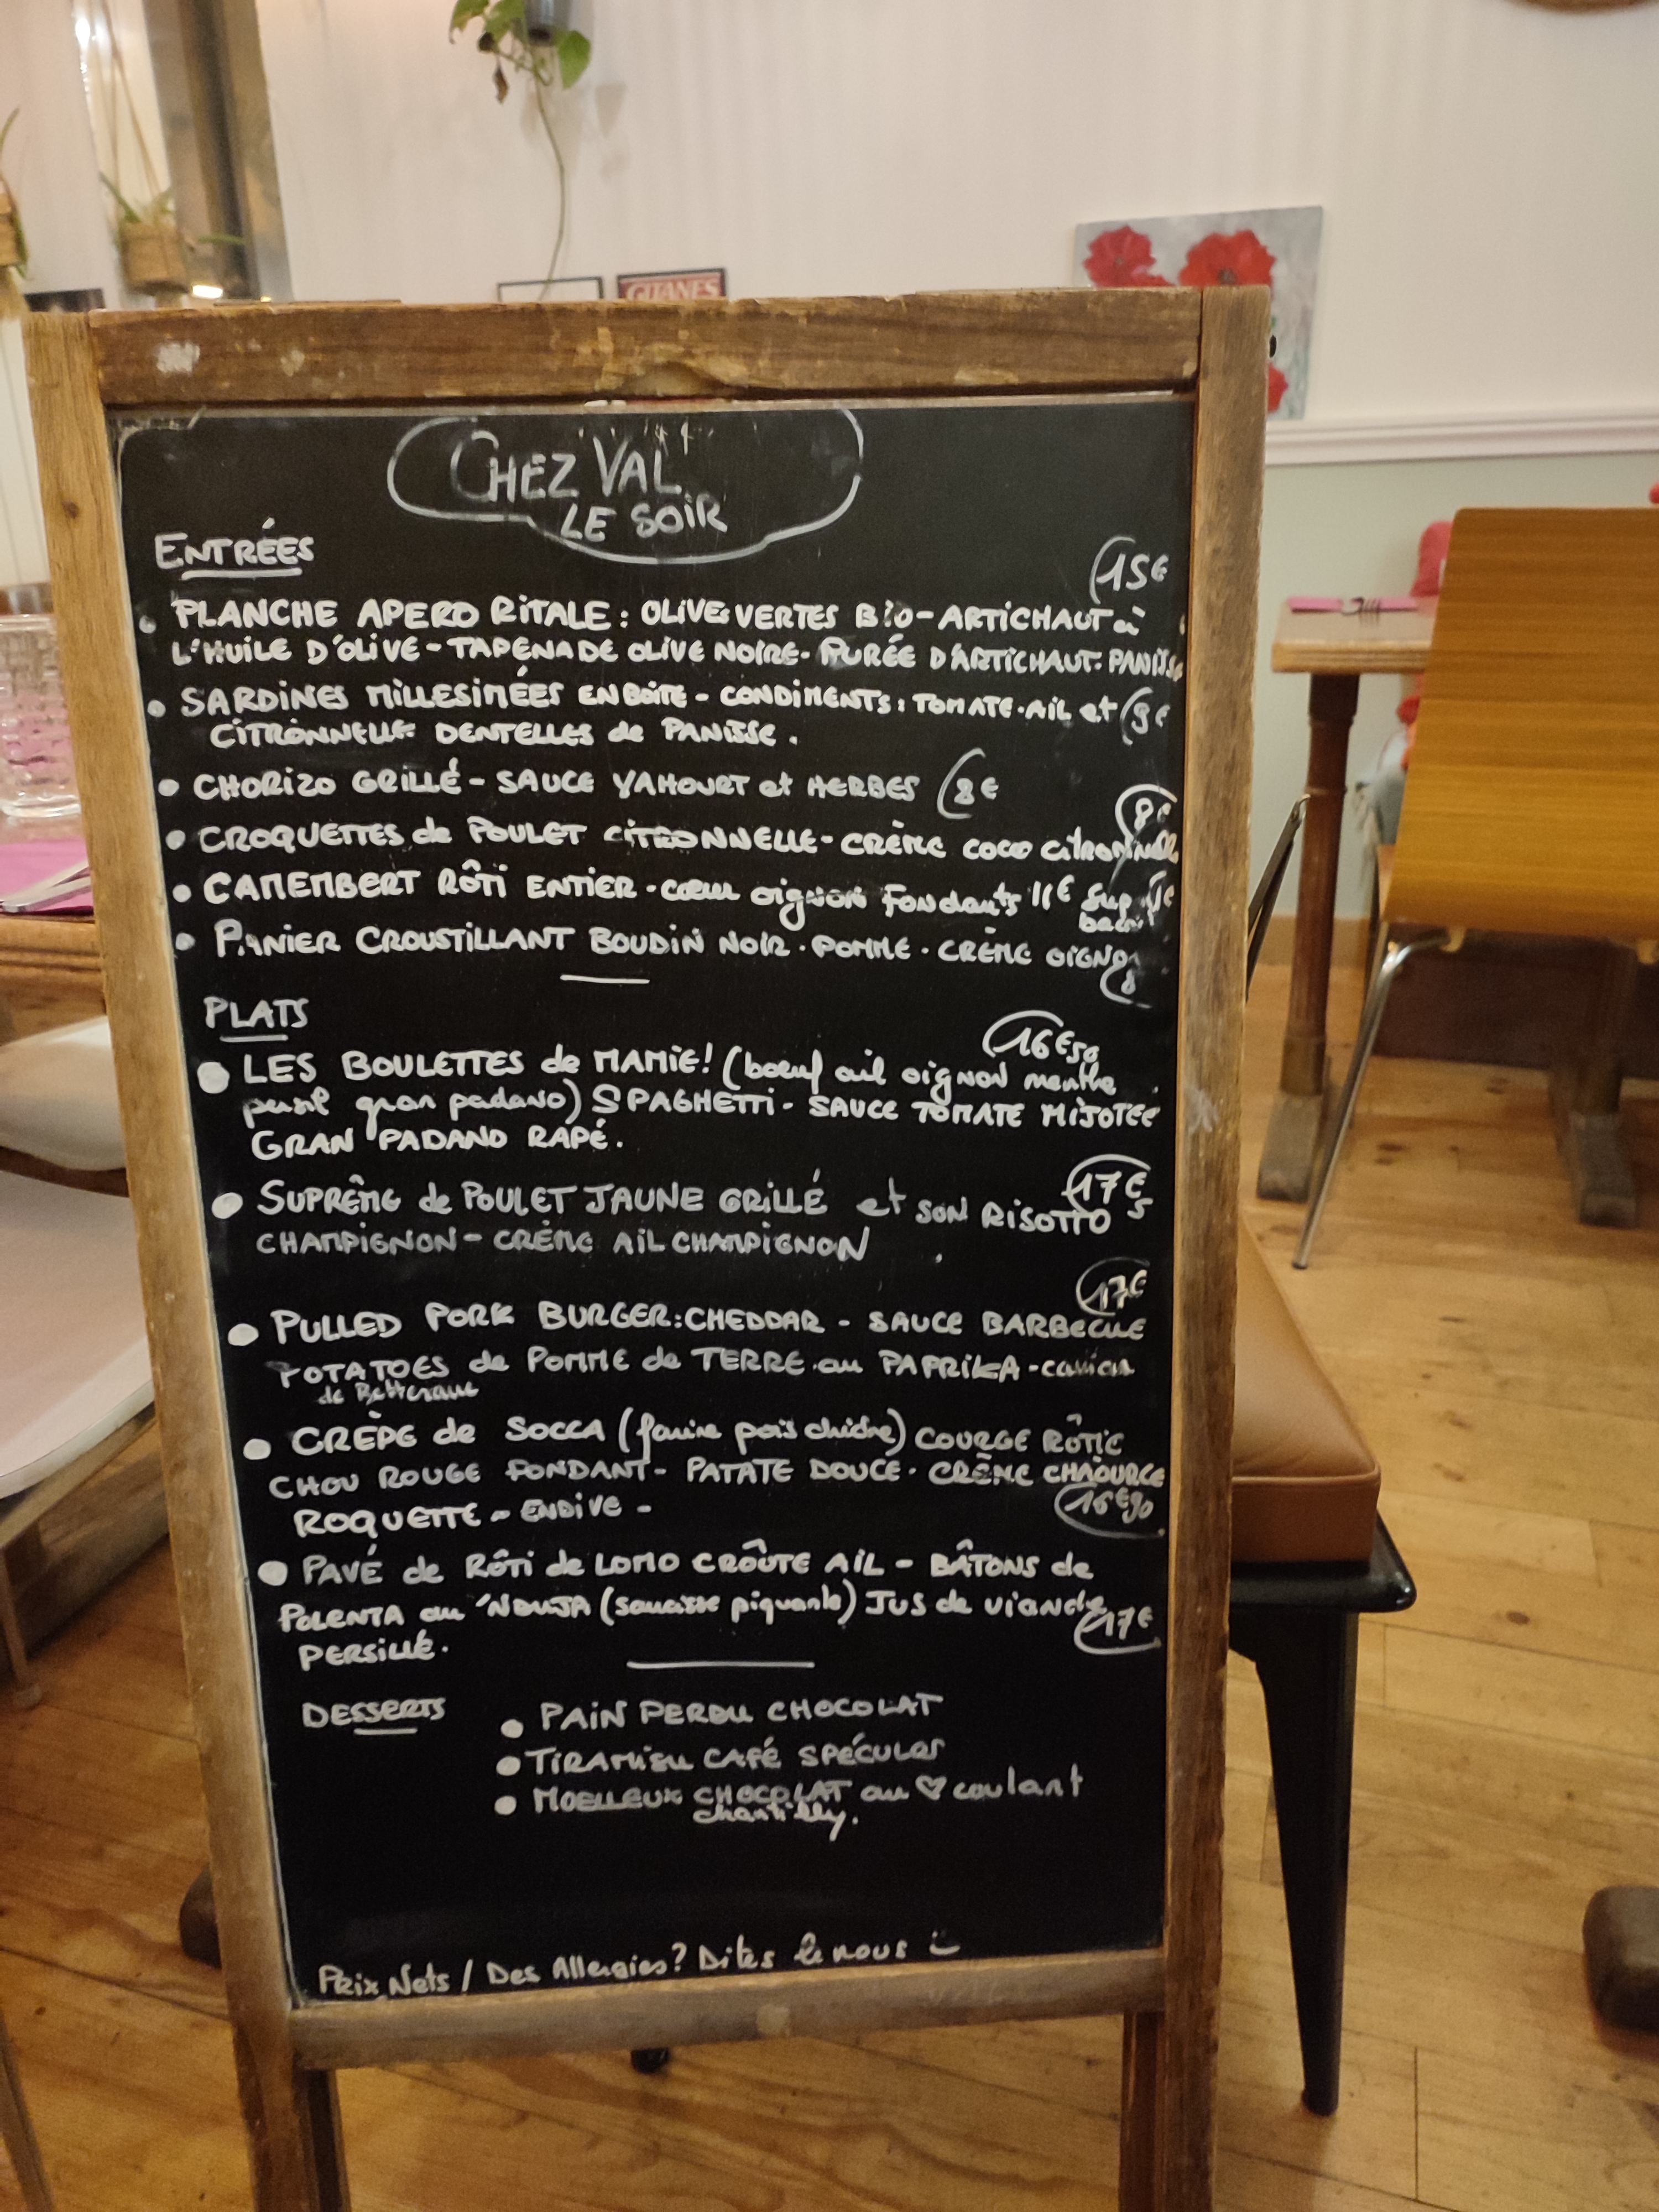 GITANES
CHEZ VAL
LE SOIR
ENTRÉES
15€
• PLANCHE APERO RITALE : OLIVES VERTES BIO - ARTICHAUT à
L'HUILE D'OLIVE - TAPENADE OLIVE NOIRE - PURÉE D'ARTICHAUT - PANISSE
• SARDINES MILLESIMÉES EN BOITE - CONDIMENTS : TOMATE - AIL et 9€
CITRONNELLE DENTELLES de PANISSE .
• CHORIZO GRILLÉ - SAUCE YAHOURT et HERBES 8€
8€
• CROQUETTES de POULET CITRONNELLE - CRÈME COCO CITRONNELLE
• CAMEMBERT RÔTI ENTIER - cœur oignon fondants 11€ Sup 1€
• PANIER CROUSTILLANT BOUDIN NOIR - POMME - CRÈME OIGNON
8
PLATS
16€50
• LES BOULETTES de MAMIE ! (boeuf ail oignon menthe
persil gran padano) SPAGHETTI - SAUCE TOMATE MIJOTÉE
GRAN PADANO RAPÉ .
17€5
• SUPRÊME de POULET JAUNE GRILLÉ et SON RISOTTO
CHAMPIGNON - CRÈME AIL CHAMPIGNON
17€
• PULLED PORK BURGER : CHEDDAR - SAUCE BARBECUE
POTATOES de POMME de TERRE au PAPRIKA - caviar
de Betterave
• CRÈPE de SOCCA (farine pois chiche) COURGE RÔTIE
CHOU ROUGE FONDANT - PATATE DOUCE - CRÈME CHAOURCE
ROQUETTE - ENDIVE -
16€90
• PAVÉ de RÔTI de LOMO CROÛTE AIL - BÂTONS de
POLENTA au 'NDUJA (saucisse piquante) JUS de viande
17€
PERSILLÉ .
DESSERTS
• PAIN PERDU CHOCOLAT
• TIRAMISU CAFÉ SPÉCULOS
• MOELLEUX CHOCOLAT au ♡ coulant
chantilly .
Prix Nets / Des Allergies ? Dites le nous